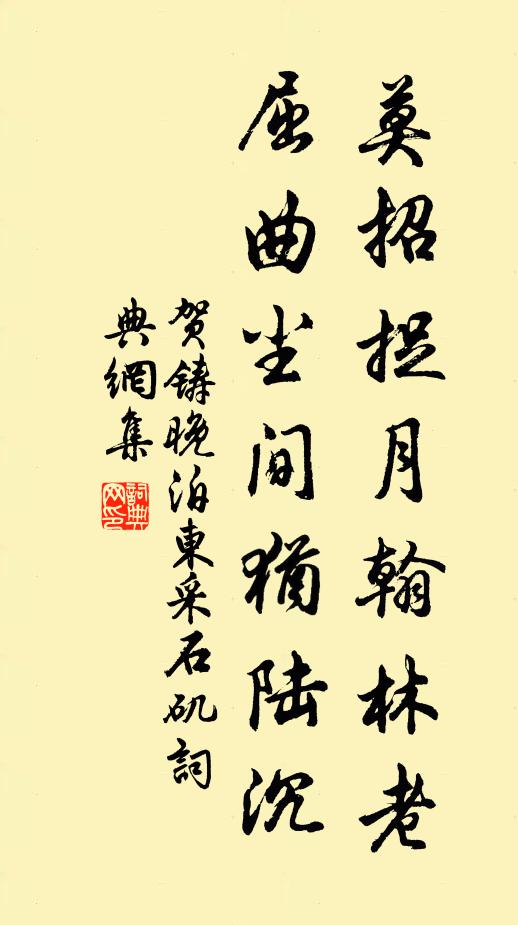 莫招捉月翰林老
屈曲尘间犹陆沉
賀鑄晚泊東采石矶詞
典網集
詞典网印